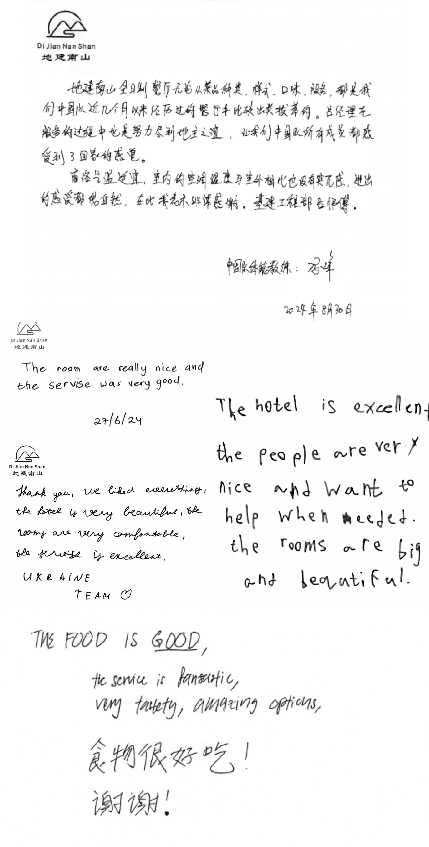 Di Jian Nan Shan
地建南山
地建南山全日制餐厅无论从菜品种类、样式、口味、服务,都是我
们中国队近几个月以来经历过的餐厅中比较出类拔萃的。经理
服务的过程中也是努力尽到地主之谊,让我们中国队所有成员都感
受到了回家的感觉。
气温适宜,室内的空调温度与室外相比也没有突兀感,进出
的感受都很自然,在此我表示非常感谢。基建工程部
中国队体能教练:
2024年8月30日
Di Jian Nan Shan
地建南山
The room are really nice and
the servise was very good.
27/6/24
Di Jian Nan Shan
地建南山
Thank you, we liked everything,
the hotel is very beautiful, the
rooms are very comfortable,
the servise is excellent.
UKRAINE
TEAM ♡
The hotel is excellent
the people are very
nice and want to
help when needed.
the rooms are big
and beautiful.
THE FOOD IS GOOD,
the service is fantastic,
very tastety, amazing options,
食物很好吃!
谢谢!